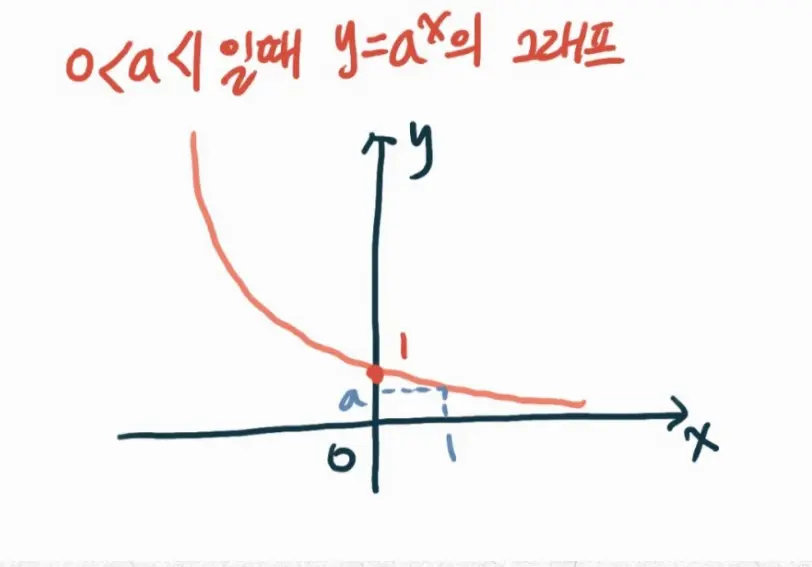 0<a<1 일때 y=aˣ의 그래프
y
1
a
1
0
x